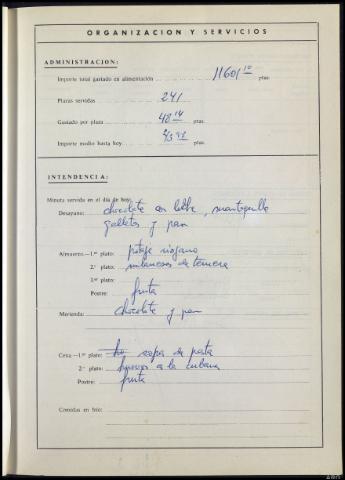 ORGANIZACION Y SERVICIOS
ADMINISTRACION:
Importe total gastado en alimentación 11601 10 ptas.
Plazas servidas 241
Gastado por plaza 48 14 ptas.
Importe medio hasta hoy ptas.
INTENDENCIA:
Minuta servida en el día de hoy:
Desayuno: chocolate con leche, mantequilla
galletas y pan
Almuerzo.—1.er plato: potaje riojano
2.º plato: milanesas de ternera
3.er plato:
Postre: fruta
Merienda: chocolate y pan
Cena.—1.er plato: sopa de pasta
2.º plato: huevos a la cubana
Postre: fruta
Comidas en frío: